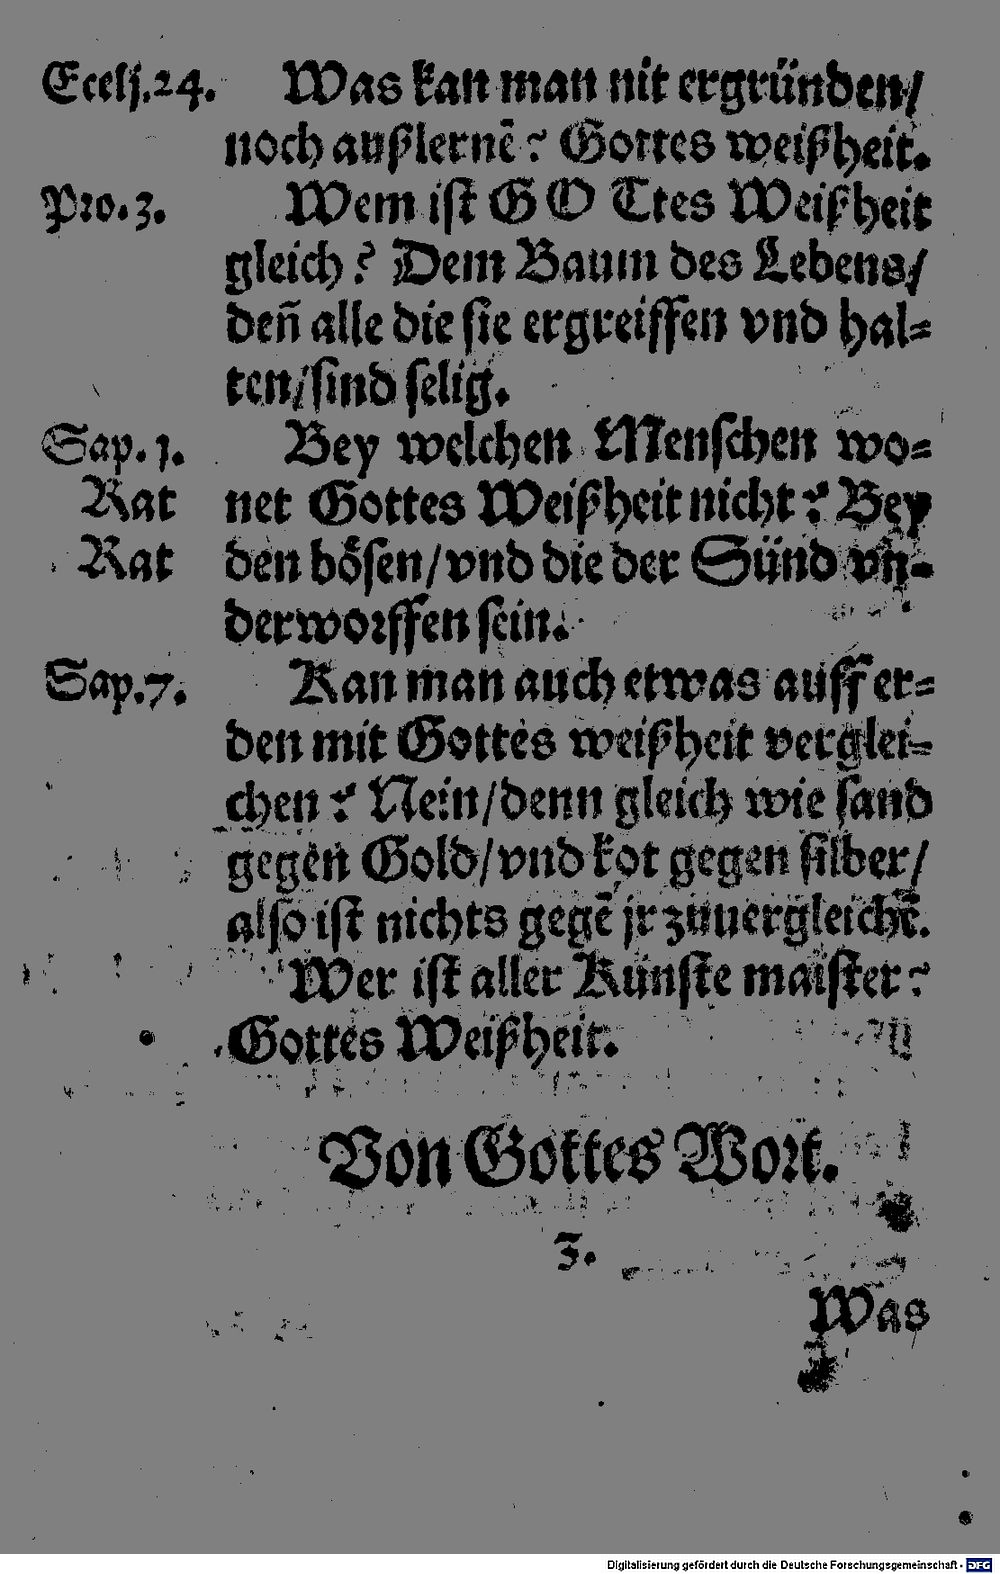 Eccls.24. Was kan man nit ergründen/
noch außlernē? Gottes weißheit.
Pro.3. Wem ist GOTtes Weißheit
gleich? Dem Baum des Lebens/
deñ alle die sie ergreiffen vnd hal=
ten/sind selig.
Sap.1. Bey welchen Menschen wo=
Rat net Gottes Weißheit nicht? Bey
Rat den bösen/vnd die der Sünd vn=
derworffen sein.
Sap.7. Kan man auch etwas auff er=
den mit Gottes weißheit verglei=
chen? Nein/denn gleich wie sand
gegen Gold/vnd kot gegen silber/
also ist nichts gegē jr zuuergleichē.
Wer ist aller Künste maister?
Gottes Weißheit.
Von Gottes Wort.
3.
Was
Digitalisierung gefördert durch die Deutsche Forschungsgemeinschaft - DFG